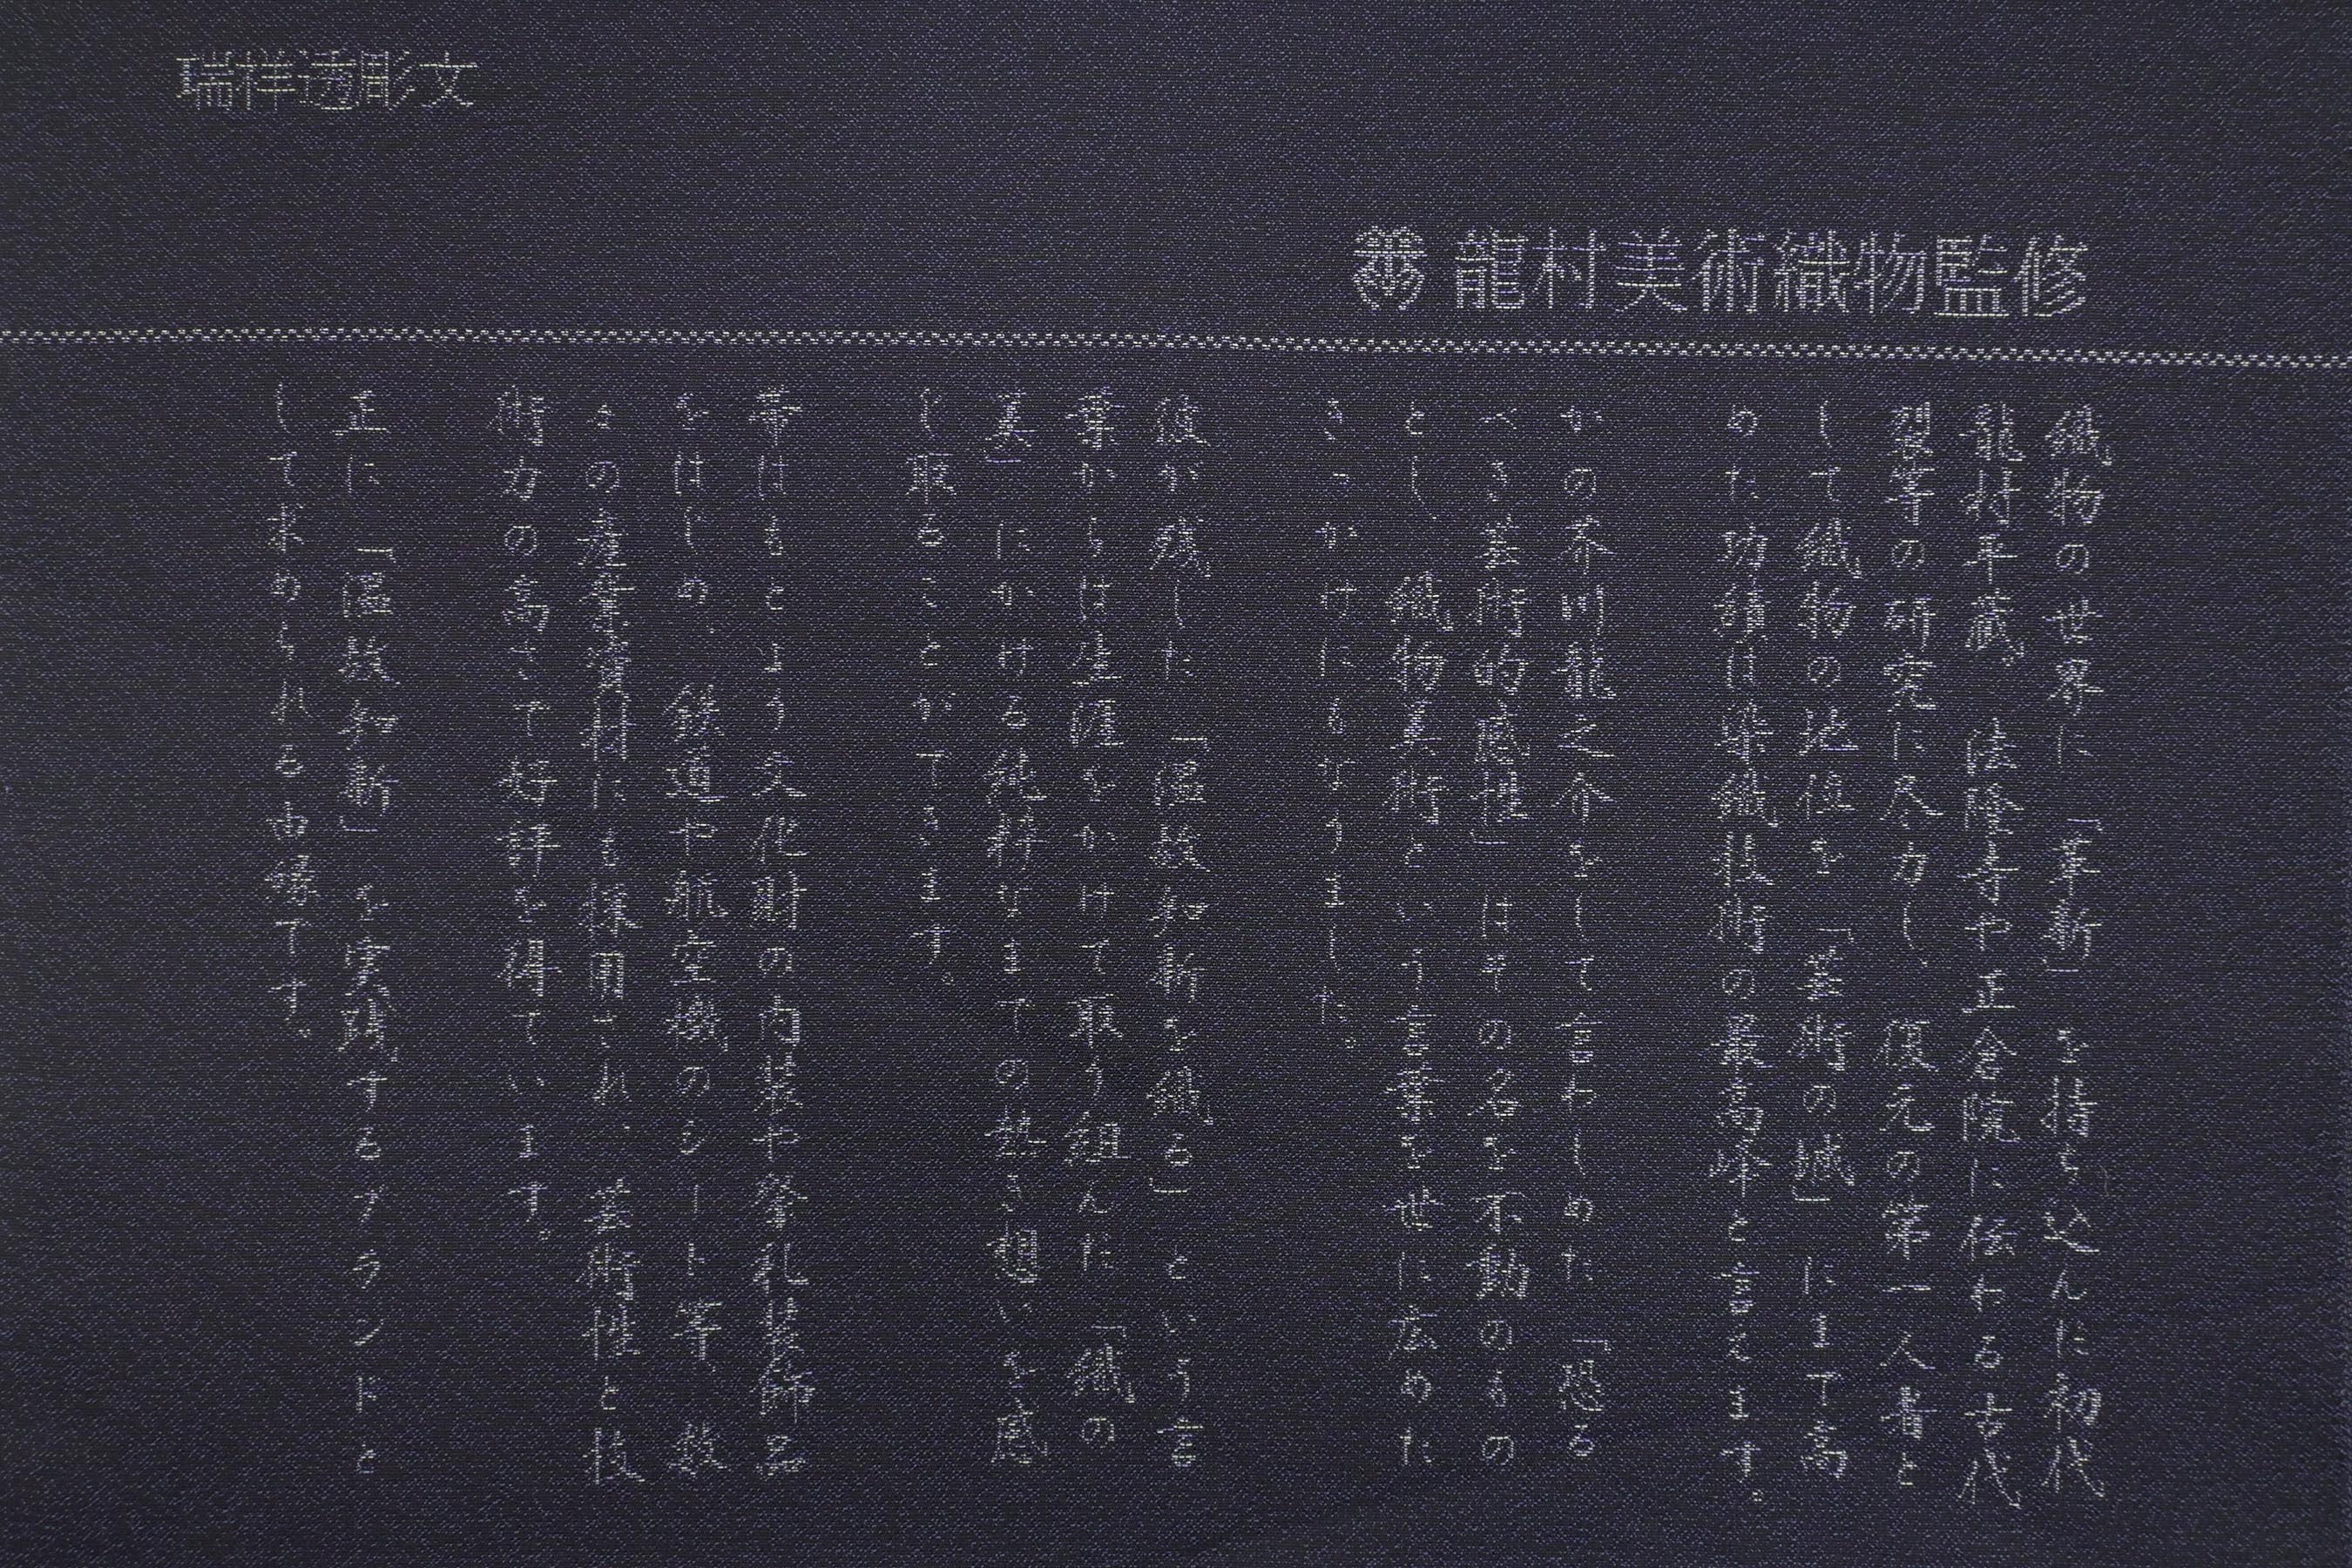 瑞祥透彫文
龍村美術織物監修
織物の世界に「革新」を持ち込んだ初代
龍村平蔵。法隆寺や正倉院に伝わる古代
裂等の研究に尽力し、復元の第一人者と
して織物の地位を「芸術の域」にまで高
めた功績は染織技術の最高峰と言えます。
かの芥川龍之介をして言わしめた「恐る
べき芸術的感性」はその名を不動のもの
とし、織物美術という言葉を世に広めた
きっかけにもなりました。
彼が残した「温故知新を織る」という言
葉からは生涯をかけて取り組んだ「織の
美」にかける純粋なまでの熱き想いを感
じ取ることができます。
帯はもとより文化財の内装や祭礼装飾品
をはじめ、鉄道や航空機のシート等、数
々の産業資材にも採用され、芸術性と技
術力の高さで好評を得ています。
正に「温故知新」を実践するブランドと
して求められる由縁です。